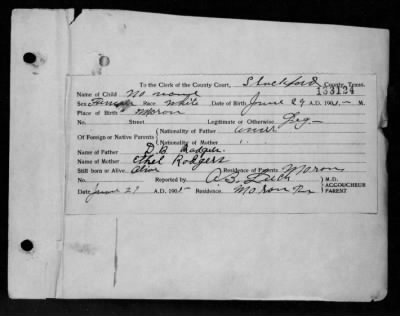 To the Clerk of the County Court, Shackelford County, Texas.
133124
Name of Child No name
Sex Female Race White Date of Birth June 29 A.D. 190 M.
Place of Birth Moran
No. Street Legitimate or Otherwise Leg
Of Foreign or Native Parents
Nationality of Father Amer
Nationality of Mother "
Name of Father D. B. Rodgers
Name of Mother Ethel Rodgers
Still born or Alive. Alive Residence of Parents Moran
No. Reported by M.D.
ACCOUCHEUR
PARENT
Date June 29 A.D. 190 Residence. Moran Tex